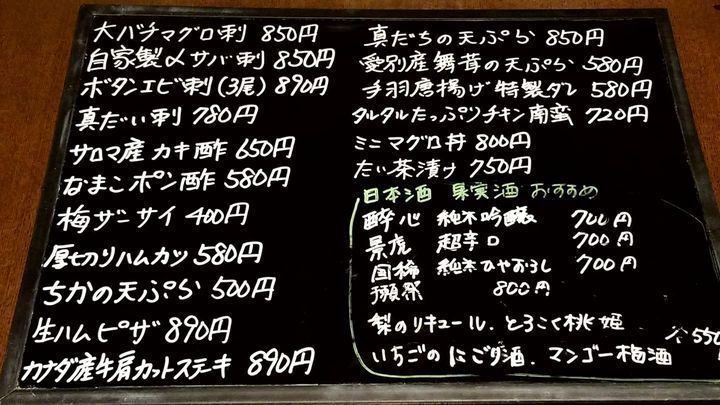 大バチマグロ刺 850円
自家製〆サバ刺 850円
ボタンエビ刺(3尾) 890円
真だい刺 780円
サロマ産カキ酢 650円
なまこポン酢 580円
梅ザーサイ 400円
厚切りハムカツ 580円
ちかの天ぷら 500円
生ハムピザ 890円
カナダ産牛肩カットステーキ 890円
真だちの天ぷら 850円
愛別産舞茸の天ぷら 580円
手羽唐揚げ特製ダレ 580円
タルタルたっぷりチキン南蛮 720円
ミニマグロ丼 800円
たい茶漬け 750円
日本酒 果実酒 おすすめ
酔心 純米吟醸 700円
景虎 超辛口 700円
国稀 純米ひやおろし 700円
獺祭 800円
梨のリキュール、とろこく桃姫
いちごのにごり酒、マンゴー梅酒
各550